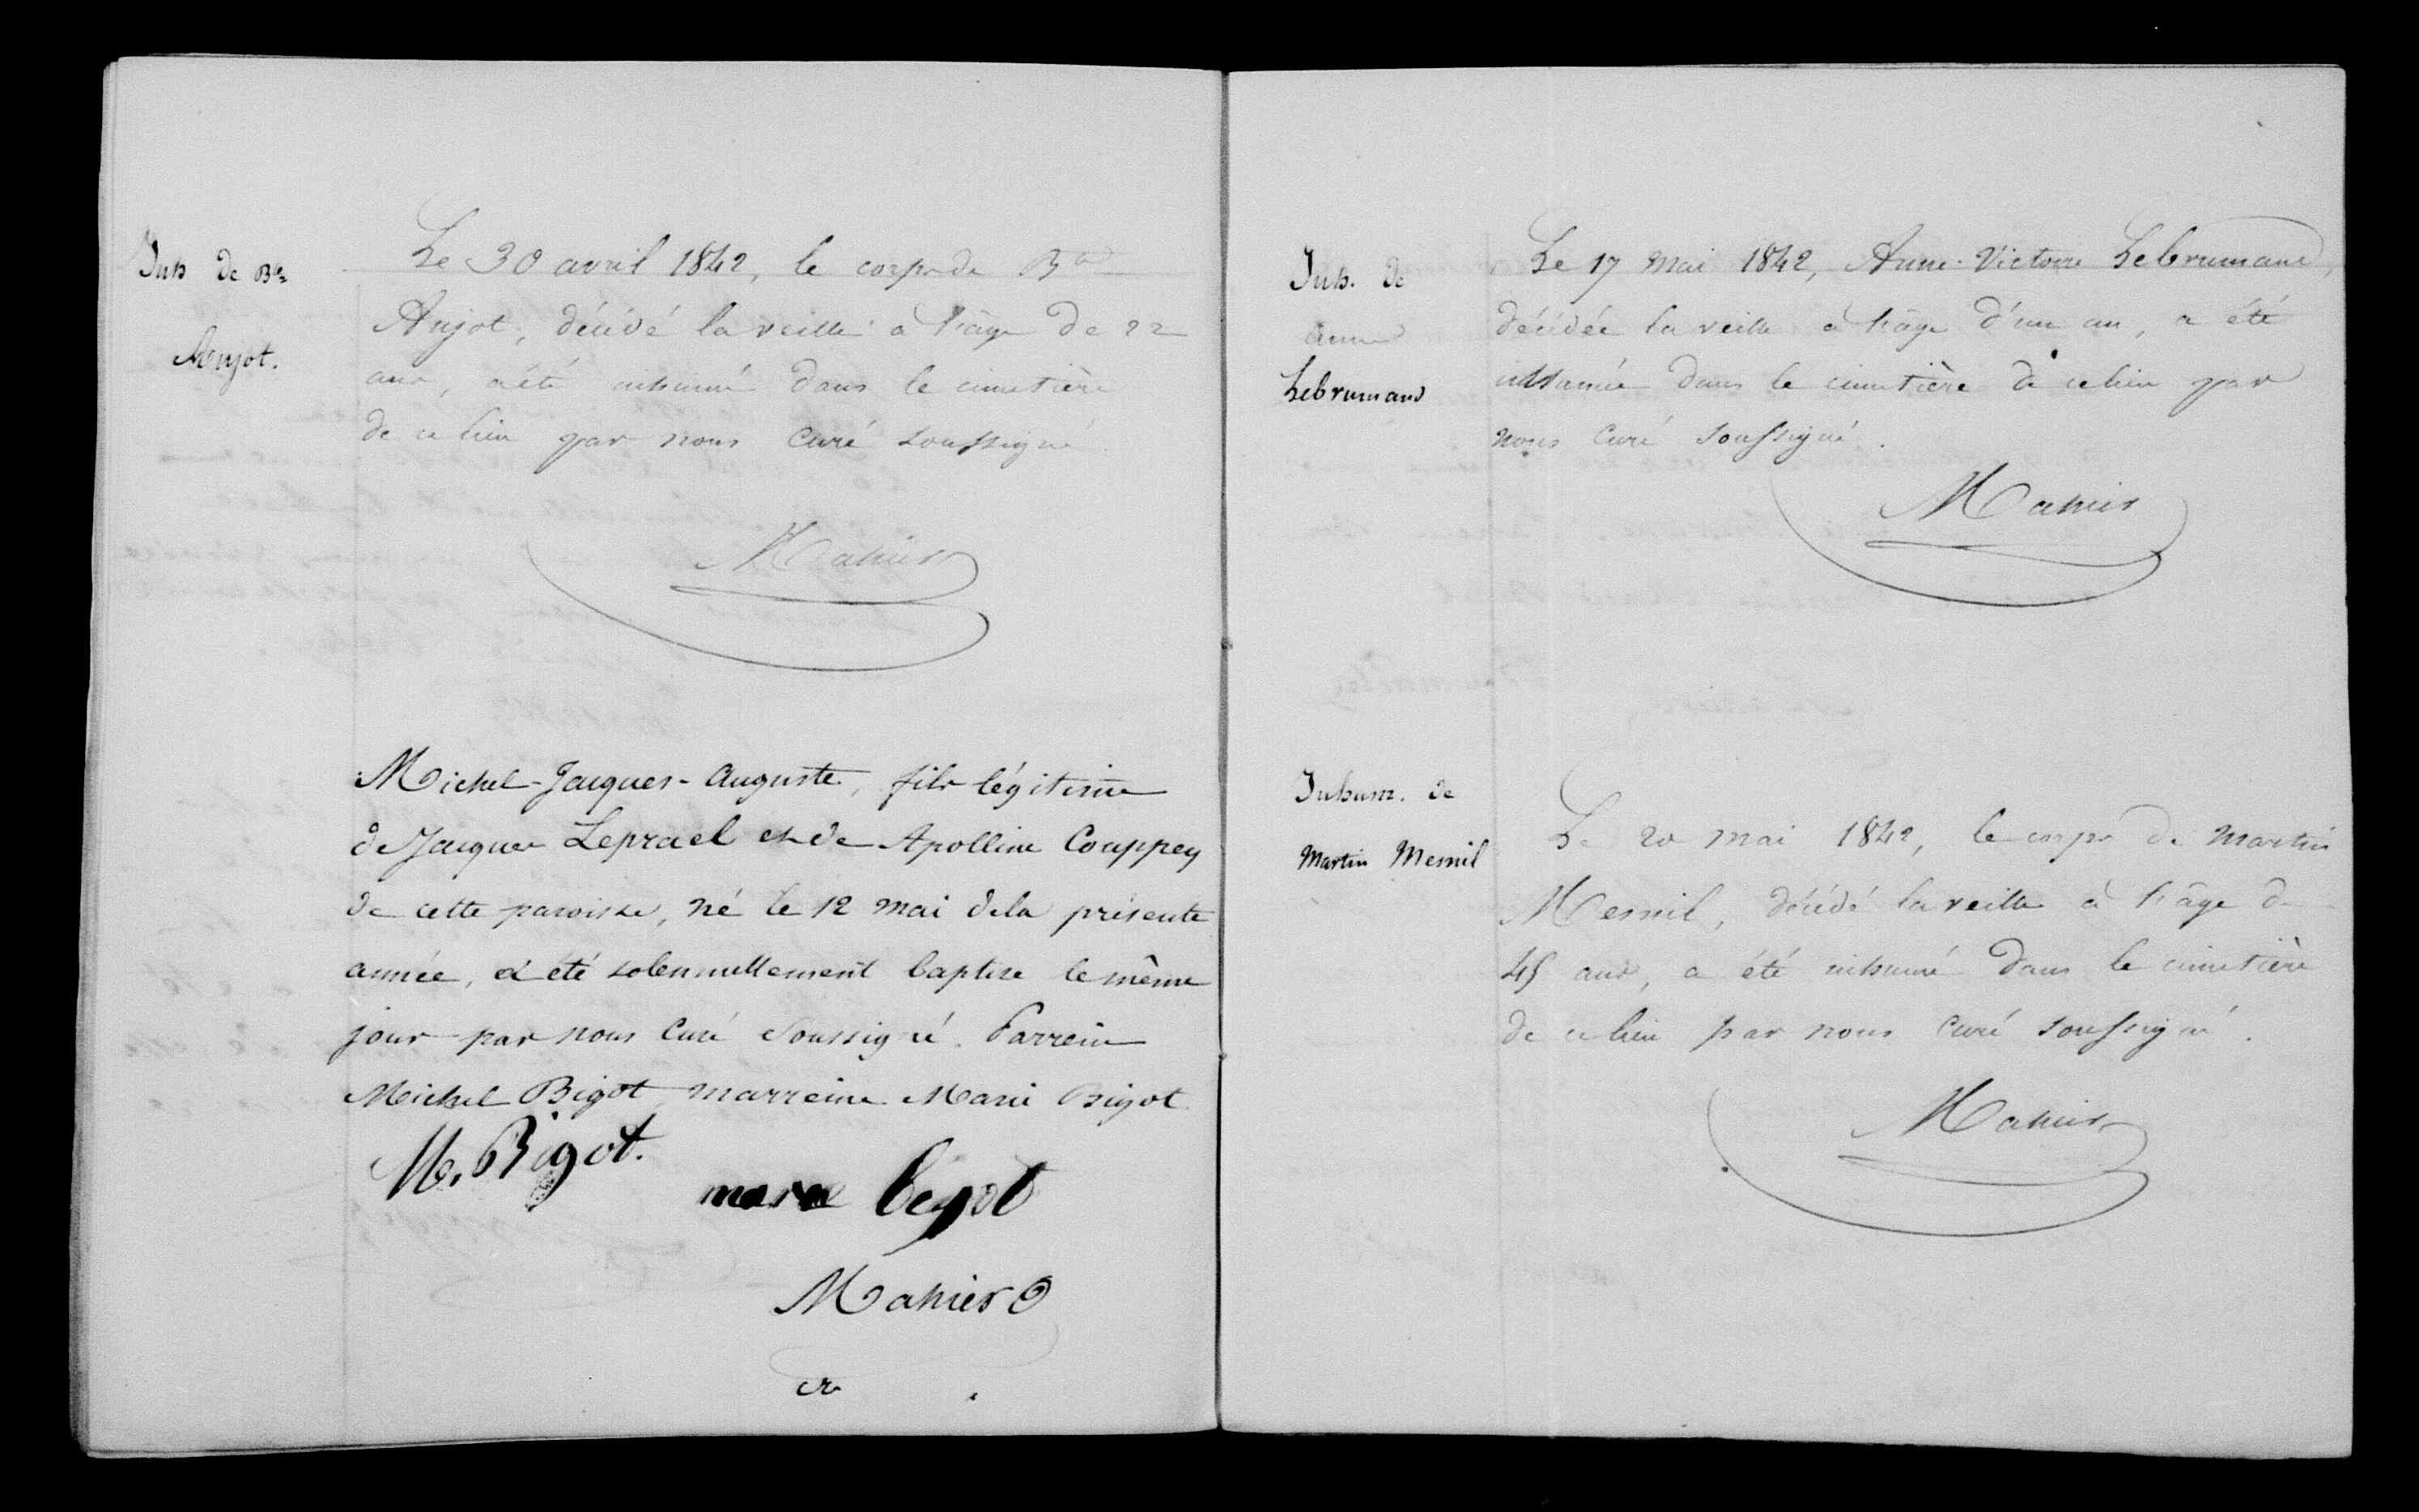 Inh de Bte
Anjot.
Le 30 avril 1842, le corps de Bte
Anjot, décédé la veille à l'âge de 22
ans, a été inhumé dans le cimetière
de ce lieu par nous Curé soussigné
Mahier
Michel-Jacques-Auguste, fils légitime
de Jacques Leprael et de Apolline Couppey
de cette paroisse, né le 12 mai de la présente
année, a été solennellement baptisé le même
jour par nous Curé soussigné. Parrein
Michel Bigot marreine Marie Bigot
M. Bigot.
marie bigot
Mahier
cr
Inh. de
Anne
Lebrumand
Le 17 Mai 1842, Anne-Victoire Lebrumand,
décédée la veille à l'âge d'un an, a été
inhumée dans le cimetière de ce lieu par
nous Curé soussigné.
Mahier
Inhum. de
Martin Mesnil
Le 20 mai 1842, le corps de Martin
Mesnil, décédé la veille à l'âge de
45 ans, a été inhumé dans le cimetière
de ce lieu par nous Curé soussigné.
Mahier